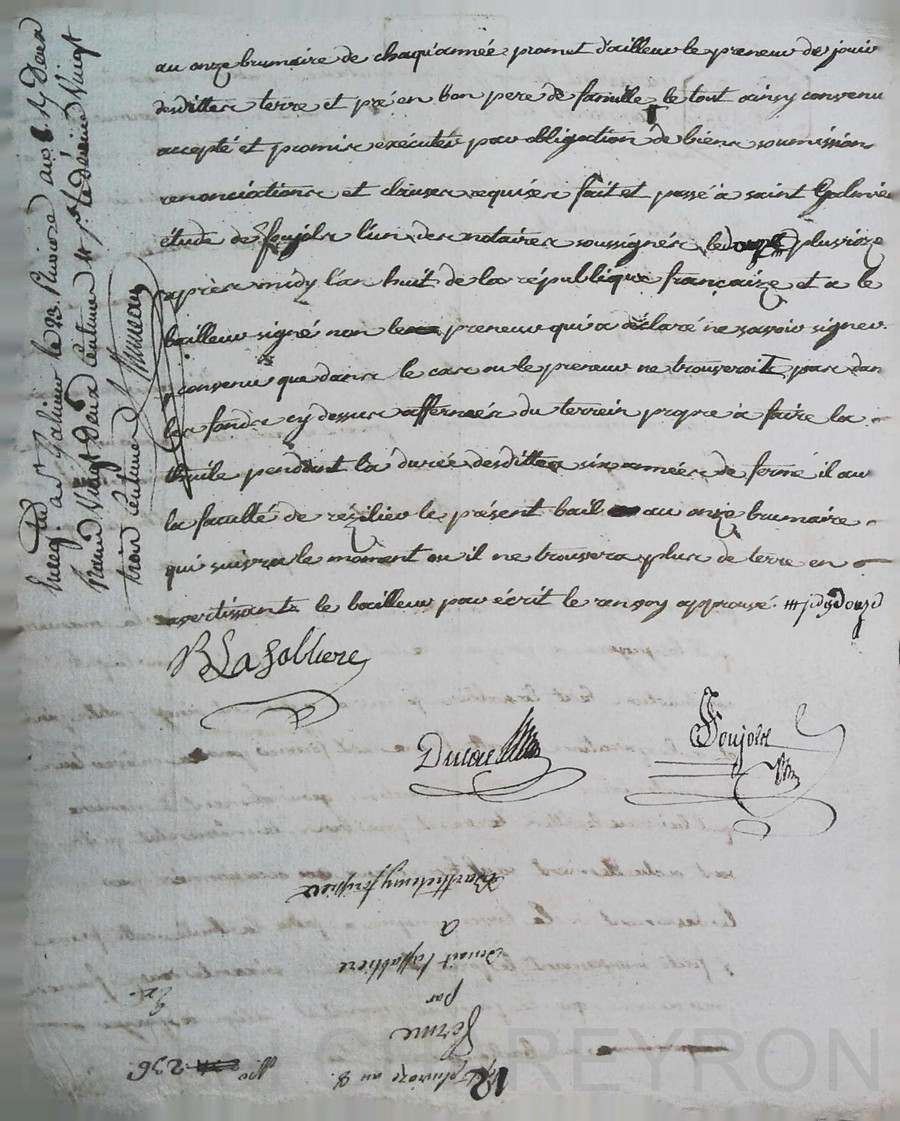 au onze brumaire de chaqu'année promet d'ailleur le preneur de jouir
desdittes terre et pré en bon pere de famille le tout ainsy convenu
accepté et promis exécuter par obligation de biens soumission
renonciations et clauses requises fait et passé à saint Galmier
étude de Foujols l'un des notaires soussignés le pluvioze
après midy l'an huit de la république françaize et a le
bailleur signé non le preneur qui a déclaré ne savoir signer
convenu que dans le cas ou le preneur ne trouveroit pas dan
les fonds cy dessus affermés du terrein propre à faire la
thuile pendant la durée desdittes six années de ferme il au
la faculté de rézilier le présent bail au onze brumaire
qui suivra le moment ou il ne trouvera plus de terre en
avertissant le bailleur par écrit le renvoy approuvé. douze
B Lasabliere
Ducros
Foujols
Enreg. a St Galmier le 23 Pluviose an 8
francs Vingt Deux Centimes
trois Centimes
Barthelemy
a
Benoit Lassabliere
par
Ferme
12 pluvioze an 8.
No 236